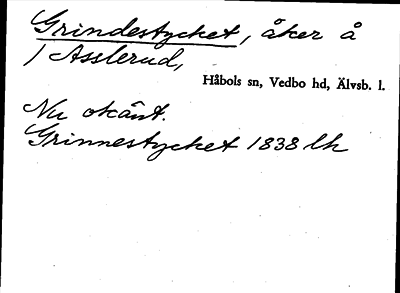 Grindestycket, åker å
1 Asslerud,
Håbols sn, Vedbo hd, Älvsb. l.
Nu okänt.
Grinnestycket 1838 lh